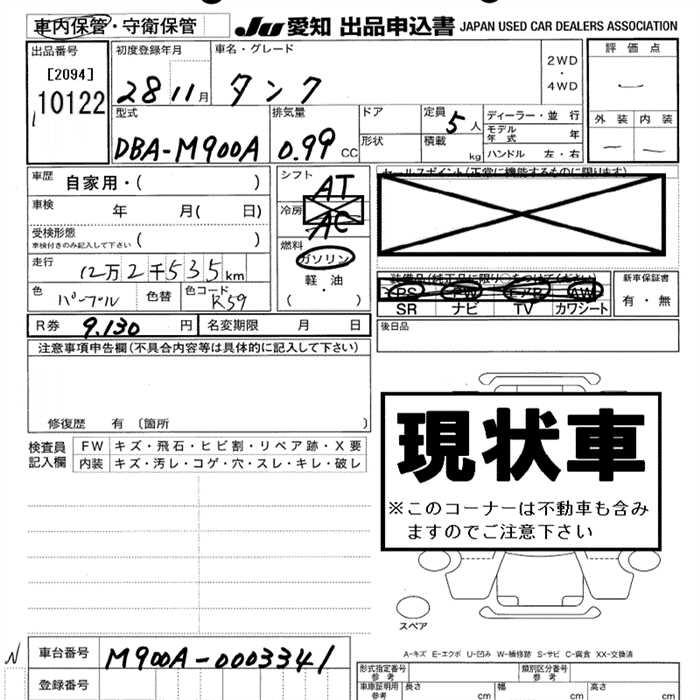 車内保管・守衛保管
JU 愛知 出品申込書 JAPAN USED CAR DEALERS ASSOCIATION
出品番号 初度登録年月 車名・グレード 2WD・4WD 評価点
[2094]
10122
28 11月 タンク
外装 内装
型式 排気量 ドア 定員 5人 ディーラー・並行
DBA-M900A 0.99 CC 形状 積載 kg モデル年式 年
ハンドル 左・右
車歴 自家用・( ) シフト AT セールスポイント(正常に機能するものに限ります)
車検 年 月( 日) 冷房 AC
受検形態 車検付きのみ記入して下さい ( ) 燃料 ガソリン
走行 12万2千535km 軽・油
色 パープル 色替 色コード R59 ・( )
PS PW エアB AW 新車保証書
SR ナビ TV カワシート 有・無
R券 9,130円 名変期限 月 日 後日品
注意事項申告欄(不具合内容等は具体的に記入して下さい)
修復歴 有 〔箇所 〕
現状車
※このコーナーは不動車も含みますのでご注意下さい
検査員記入欄 FW キズ・飛石・ヒビ割・リペア跡・X要
内装 キズ・汚レ・コゲ・穴・スレ・キレ・破レ
スペア
A-キズ E-エクボ U-凹み W-補修跡 S-サビ C-腐食 XX-交換済
N 車台番号 M900A-0003341
登録番号
形式指定番号 参考 類別区分番号 参考
車庫証明用 参考 長さ cm 幅 cm 高さ cm